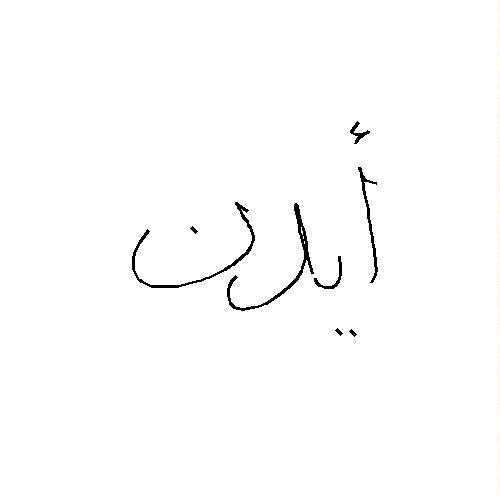 أيدن